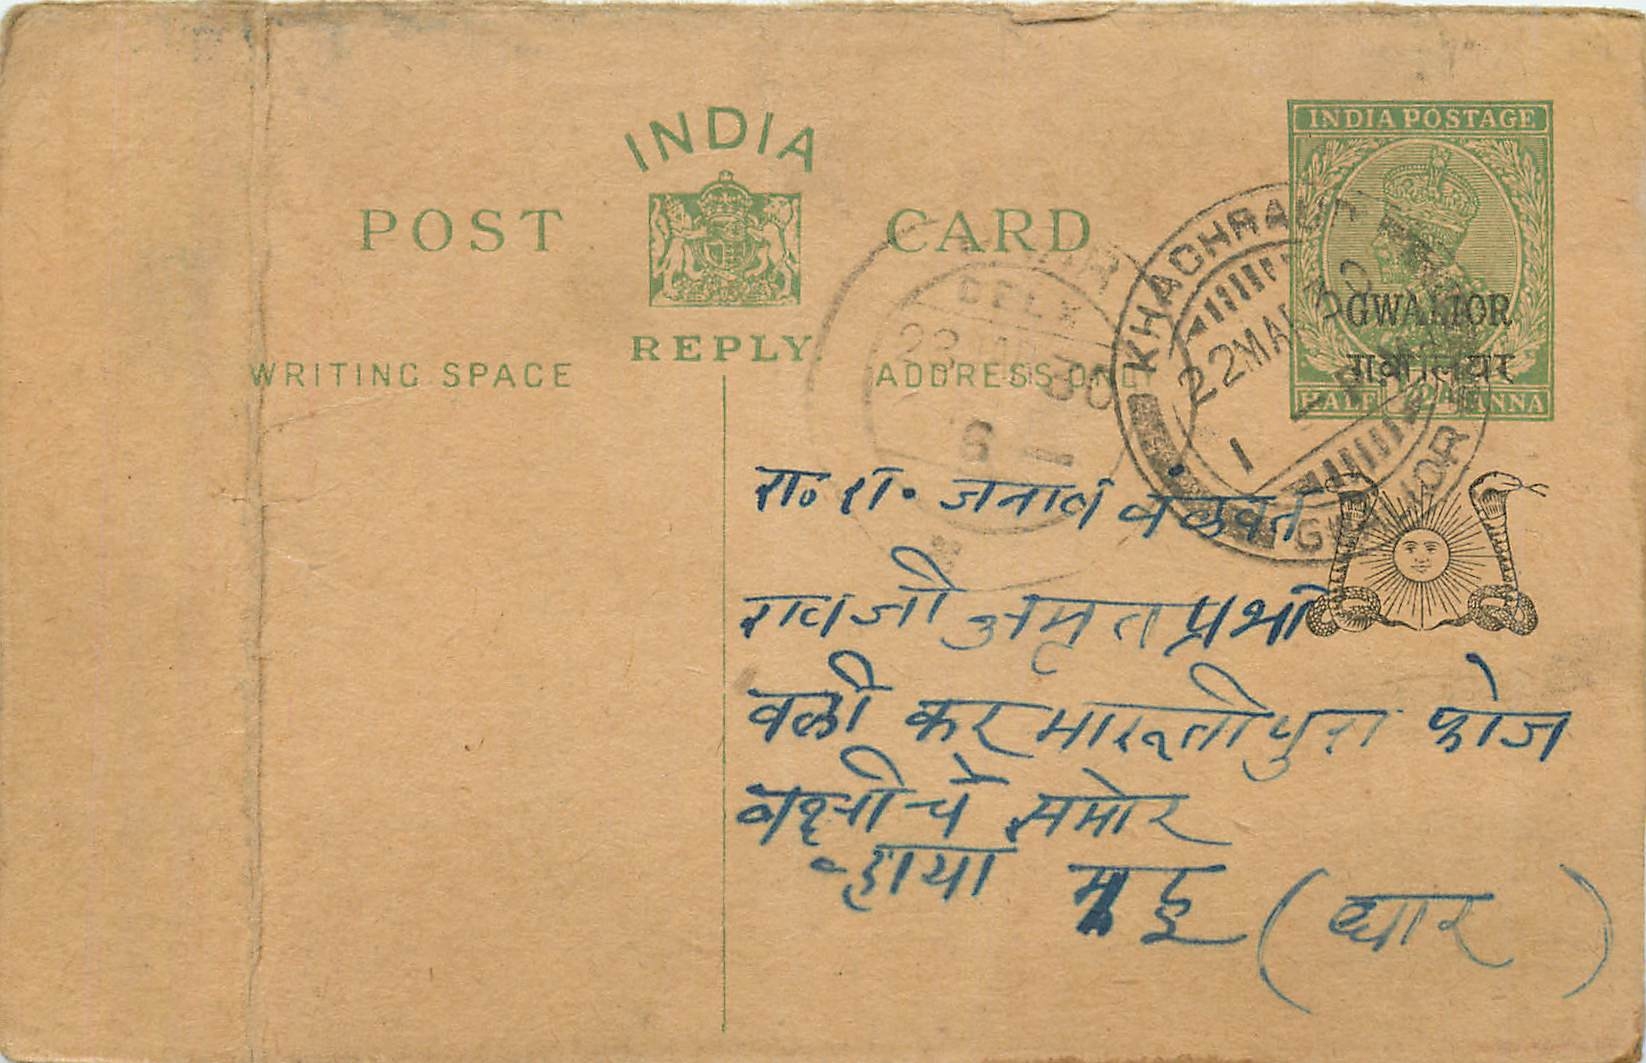 INDIA
POST CARD
REPLY.
WRITING SPACE
ADDRESS ONLY
INDIA POSTAGE
GWALIOR
ग्वालियर
HALF ANNA
KHACHRAUD
22 MAR 30
GWALIOR
23 MAR 30
6
रा. रा. जनाब बळवंत
रावजी अमृत प्रभा
वळी कर मारुतीपुरा फोज
बक्षीचे समोर
व्हाया महू (धार)